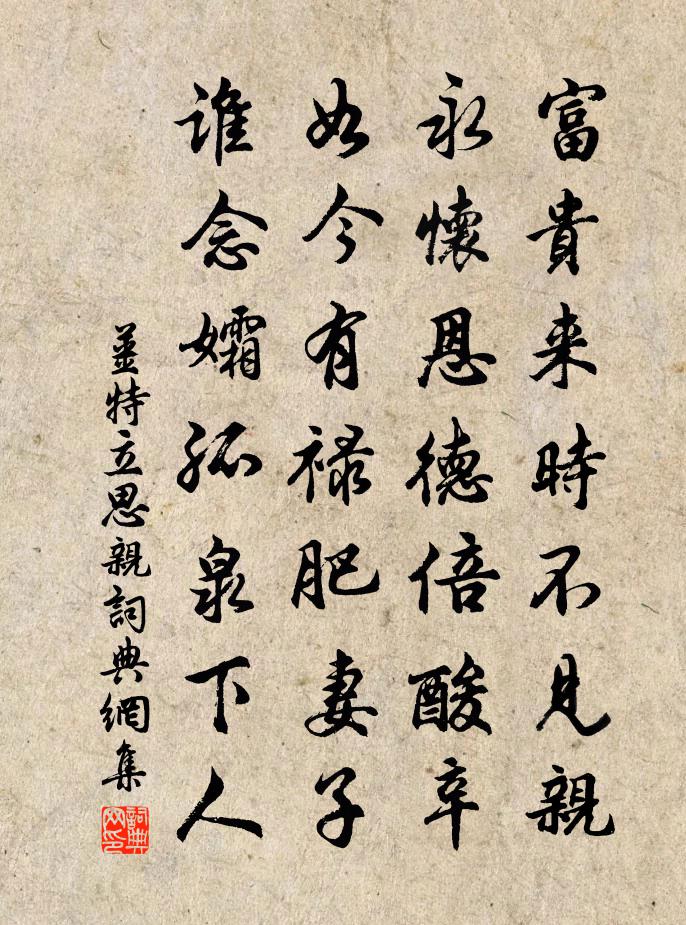 富貴来時不見親
永懷恩德倍酸辛
如今有禄肥妻子
誰念孀孤泉下人
姜特立思親詞典網集
詞典网印